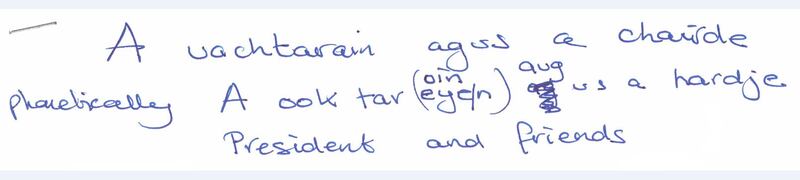 A uachtarain agus a chaírde
phonetically A ook tar (oin) aug us a hardje
President and friends